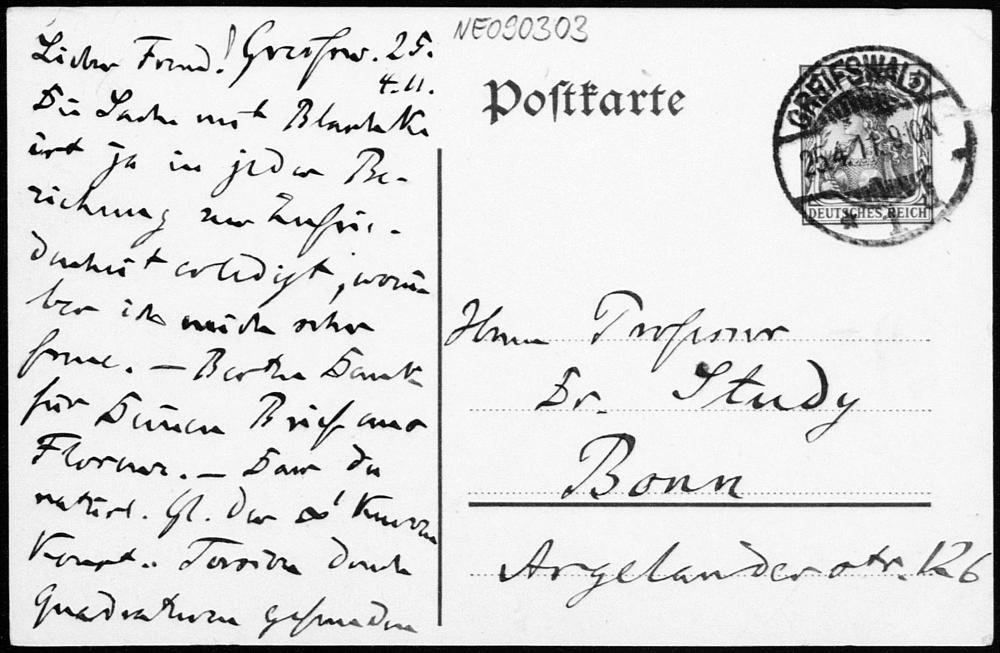 NE090303
Lieber Freund! Greifsw. 25.
4. 11.
Die Sache mit Blaschke
ist ja in jeder Be-
ziehung zur Zufrie-
denheit erledigt, worü
ber ich mich sehr
freue. — Besten Dank
für Deinen Brief aus
Florenz. — Dass die
natürl. Gl. der ∞¹ Kurven
konst. Torsion durch
Quadraturen gefunden
Postkarte
GREIFSWALD
25.4.11. 9-10N
DEUTSCHES REICH
Herrn Professor
Dr. Study
Bonn
Argelanderstr. 126